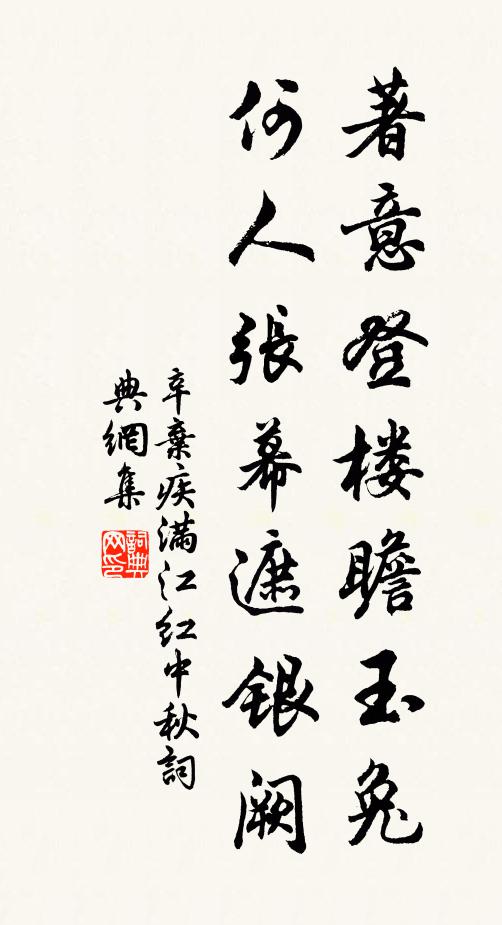 著意登楼瞻玉兔
何人張幕遮銀阙
辛棄疾满江红中秋詞
典網集
詞典网印